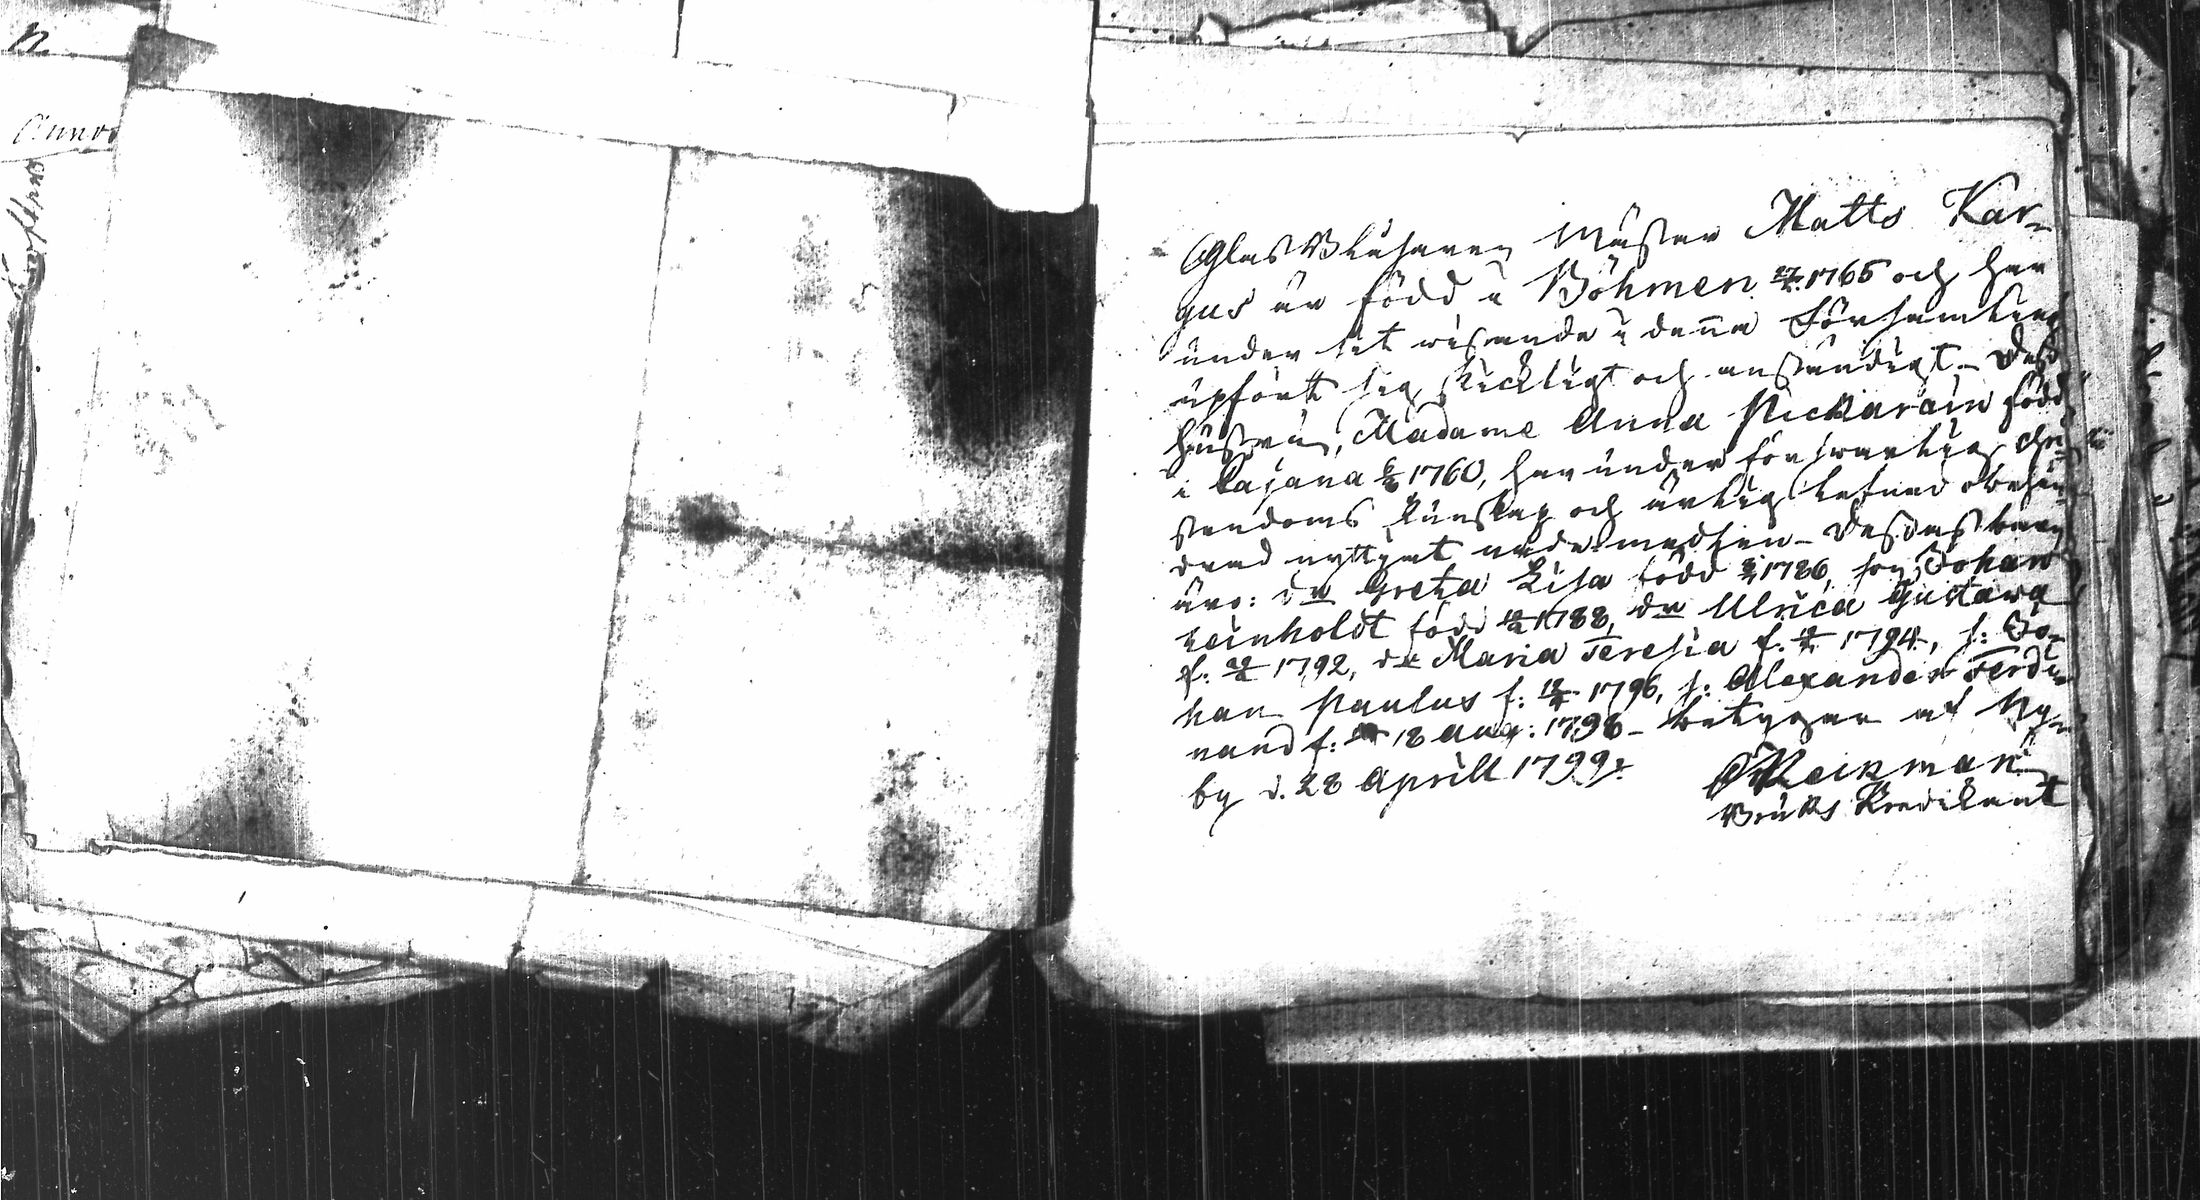 Anno
Glas Blåsaren Mäster Matts Kar-
gus är född i Böhmen 1765 och har
under sit wistande i denna Församling
upfört sig skickligt och anständigt. Dess
hustru, Madame Anna Pickarain född
i Cajana 1760, har under försvarlig Chri-
stendoms kunskap och ärlig lefnad obehin-
drad nyttjat nademedlen. Desses barn
äro: dr Greta Lisa född 1786, son Johan
Reinholdt född 1788, dr Ulrica Gustava
f: 1792, dr Maria Teresia f. 1794, s: Jo-
han Paulus f: 1796, s: Alexander Ferdi-
nand f: 18 Aug: 1798 betygar af Ny-
by d. 28 Aprill 1799.
Bruks Predikant